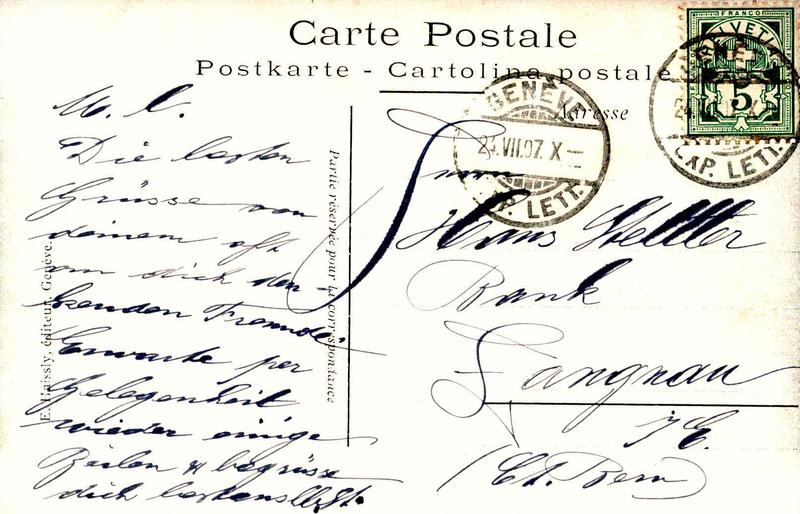 Carte Postale
Postkarte - Cartolina postale
Adresse
FRANCO
HELVETIA
5
GENÈVE
24.VII.07. X
EXP. LETT.
EXP. LETT.
M. L.
Die besten
Grüsse von
deinem oft
an dich den-
kenden Freunde.
Erwarte per
Gelegenheit
wieder einige
Zeilen & begrüsse
dich bestens
Partie réservée pour la correspondance
E. Haissly, éditeur, Genève.
Hans Stettler
Bank
Langnau
i/E.
(Ct. Bern)